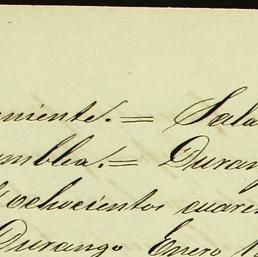 niente. = Sala
amblea. = Durang
ochocientos cuaren
Durango Enero